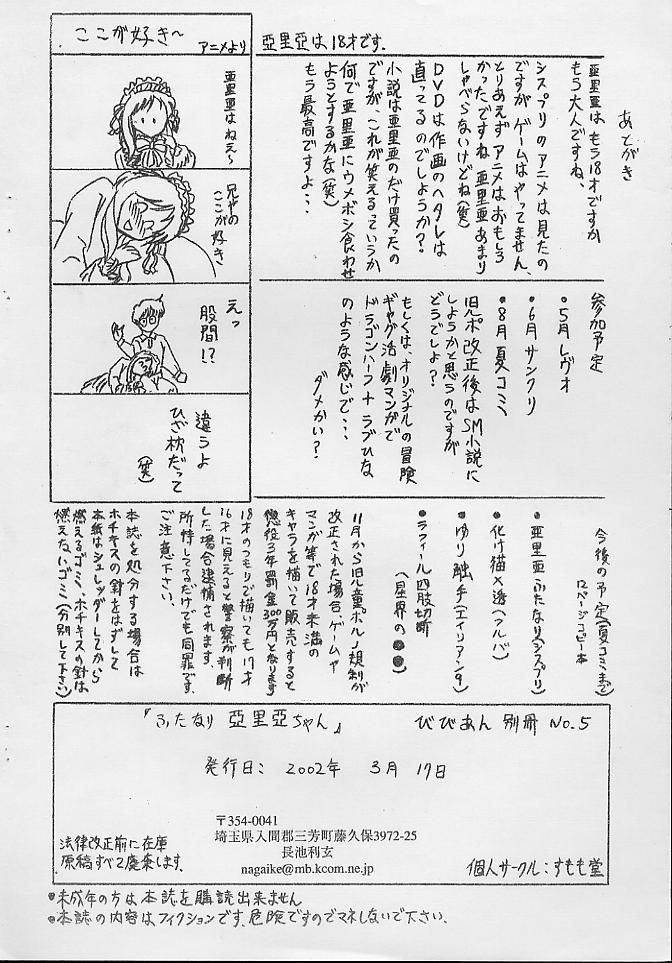 ここが好き〜
アニメより
亜里亜はねえ〜
兄やの
ここが好き、
えっ
股間!?
違うよ
ひざ枕だって
(笑)
亜里亜は18才です.
あとがき
亜里亜は、もう18才ですか
もう大人ですね、
シスプリのアニメは見たの
ですが、ゲームはやってません、
とりあえずアニメはおもしろ
かったですね 亜里亜あまり
しゃべらないけどね(笑)
DVDは作画のヘタレは
直ってるのでしょうか?
小説は亜里亜のだけ買ったの
ですが、これが笑えるっていうか
何で亜里亜にウメボシ食わせ
ようとするかな(笑)
もう最高ですよ・・
参加予定
•5月レヴォ
•6月サンクリ
•8月夏コミ
児ポ改正後はSM小説に
しようかと思うのですが
どうでしょ?
もしくは、オリジナルの冒険
ギャグ活劇マンガで
ドラゴンハーフ+ラブひな
のような感じで・・・
ダメかい?
今後の予定(夏コミまで)
12ページコピー本
•亜里亜ふたなり(シスプリ)
•化け猫×透(アルバ)
•ゆり触手(エイリアン9)
•ラフィール四肢切断
(星界の●●)
11月から児童ポルノ規制が
改正された場合、ゲームや
マンガ等で18才未満の
キャラを描いて販売すると
懲役3年罰金300万円となります
18才のつもりで描いても17才
16才に見えると警察が判断
した場合逮捕されます.
所持してるだけでも同罪です、
ご注意下さい、
本誌を処分する場合は
ホチキスの針をはずして
本紙はシュレッダーしてから
燃えるゴミ、ホチキスの針は
燃えないゴミ(分別して下さい)
『ふたなり 亜里亜ちゃん』
びびあん 別冊 No.5
発行日: 2002年 3月 17日
〒354-0041
埼玉県入間郡三芳町藤久保3972-25
長池利玄
nagaike@mb.kcom.ne.jp
法律改正前に在庫
原稿すべて廃棄します.
個人サークル:すもも堂
•未成年の方は本誌を購読出来ません
•本誌の内容はフィクションです、危険ですのでマネしないで下さい.